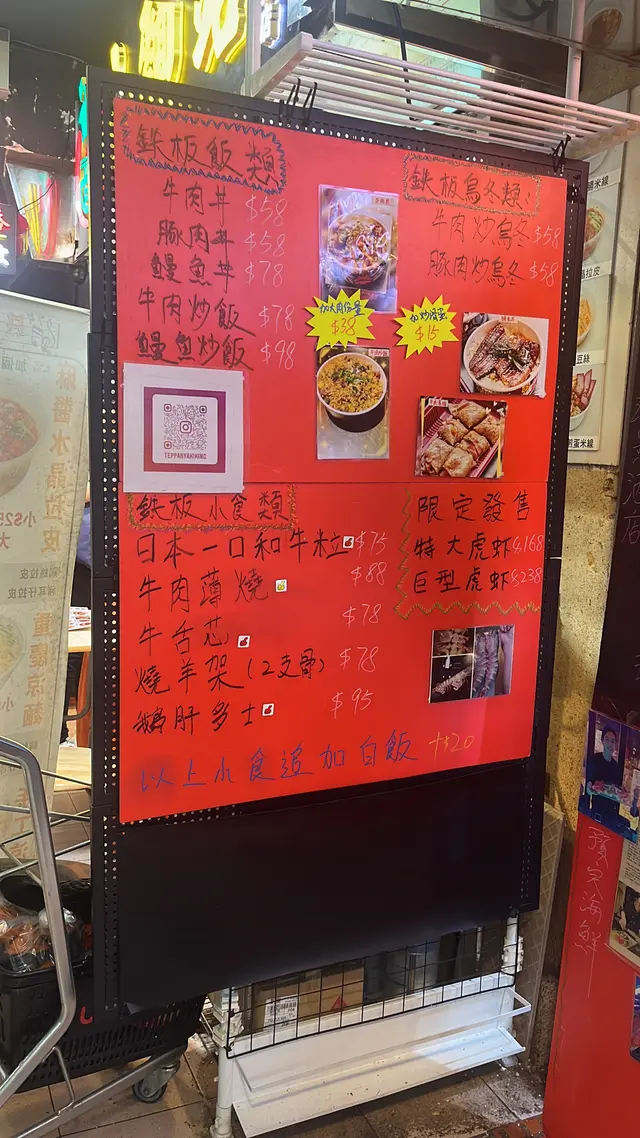 鉄板飯類
牛肉丼 $58
豚肉丼 $58
鰻魚丼 $78
牛肉炒飯 $78
鰻魚炒飯 $98
鉄板烏冬類:
牛肉炒烏冬 $58
豚肉炒烏冬 $58
加大肉份量
$38
加炒滑蛋
$15
TEPPANYAKIHING
鉄板小食類
日本一口和牛粒 $75
牛肉薄燒 $88
牛舌芯 $78
燒羊架(2支骨) $78
鵝肝多士 $95
以上小食追加白飯 +$20
限定發售
特大虎虾 $168
巨型虎虾 $238
醬水晶拉皮
海鮮